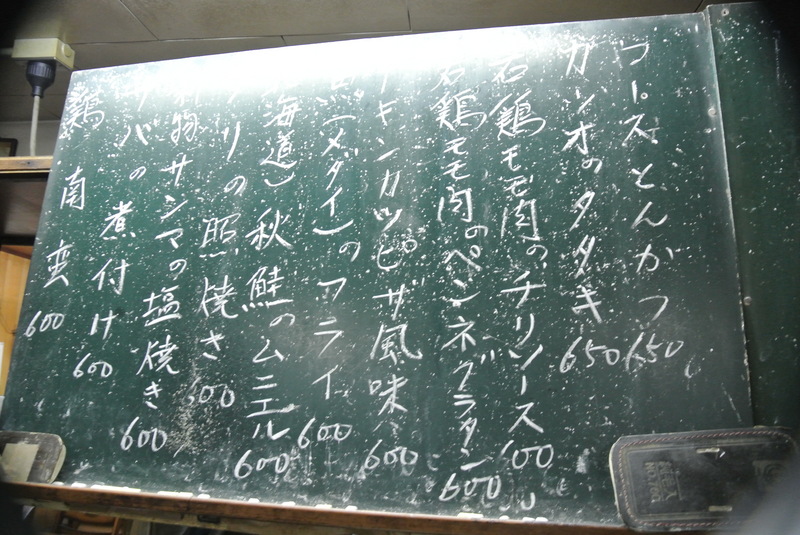 ロースとんかつ 650
カツオのタタキ 650
若鶏モモ肉のチリソース 600
若鶏モモ肉のペンネグラタン 600
チキンカツピザ風味 600
(メダイ)のフライ 600
海道)秋鮭のムニエル 600
ブリの照焼き 00
サンマの塩焼き 600
サバの煮付け 600
鶏南蛮 600